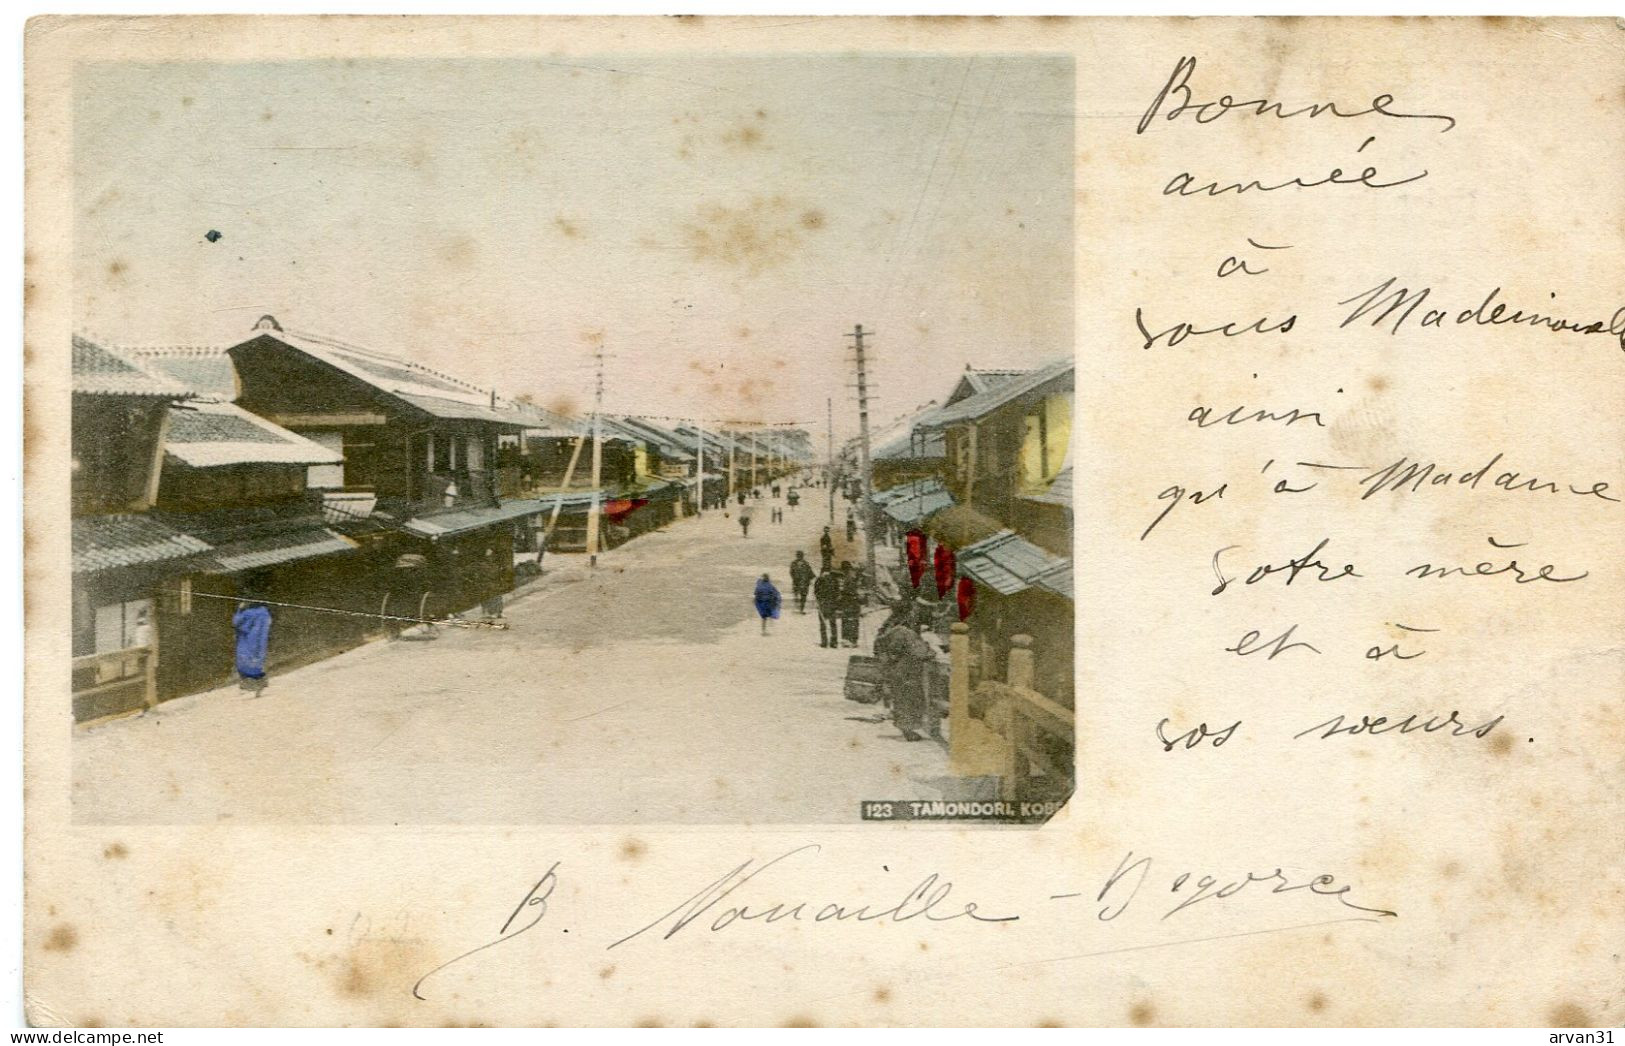 Bonne
année
à
vous Mademoiselle
ainsi
qu'à Madame
votre mère
et à
vos sœurs.
123 TAMONDORI, KOBE
B. Nouaille-Degorce
www.delcampe.net
arvan31